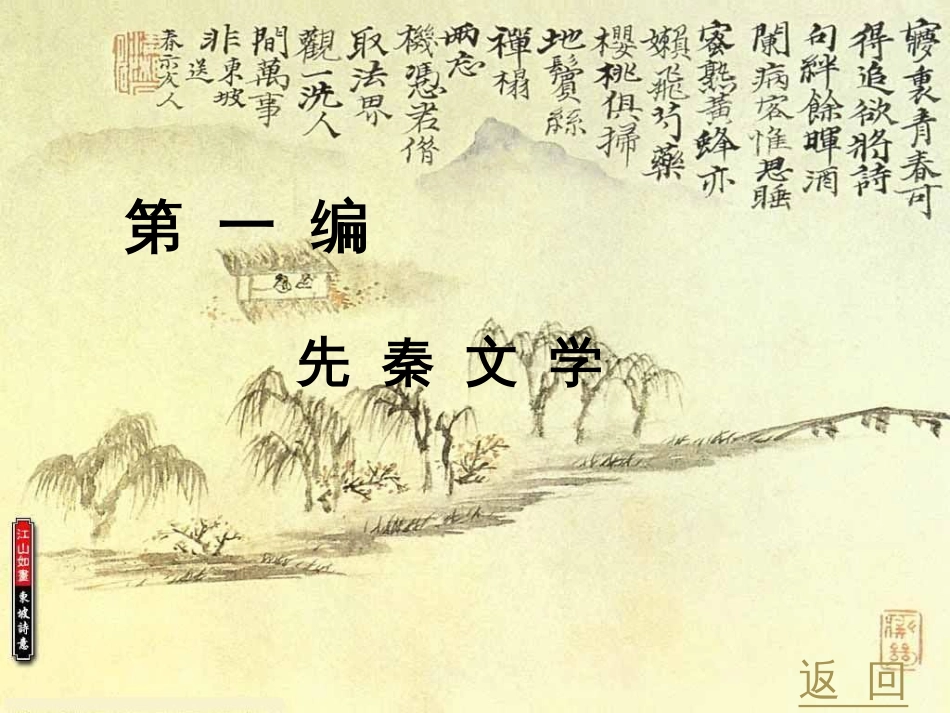 夢裏青春可
得追欲將詩
句絆餘暉酒
闌病客惟思睡
蜜熟黃蜂亦
嬾飛芍藥
櫻桃俱掃
地鬢絲
禪榻
兩忘
機憑君借
取法界
觀一洗人
間萬事
非東坡
送
春
第一编
先秦文学
江山如畫
東坡詩意
返回